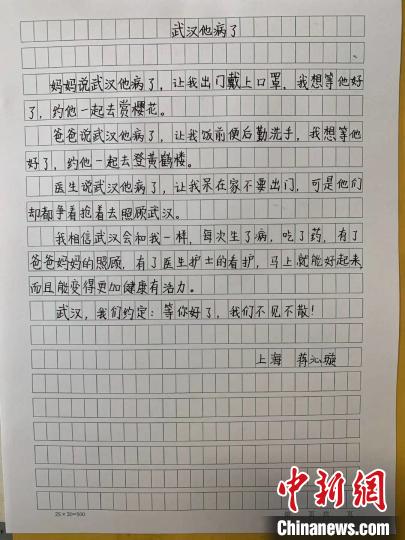 武汉他病了
妈妈说武汉他病了，让我出门戴上口罩，我想等他好
了，约他一起去赏樱花。
爸爸说武汉他病了，让我饭前便后勤洗手，我想等他
好了，约他一起去登黄鹤楼。
医生说武汉他病了，让我呆在家不要出门，可是他们
却都争着抢着去照顾武汉。
我相信武汉会和我一样，每次生了病，吃了药，有了
爸爸妈妈的照顾，有了医生护士的看护，马上就能好起来，
而且能变得更加健康有活力。
武汉，我们约定：等你好了，我们不见不散！
上海 蒋沁璇
25×20=500
中新网
Chinanews.com